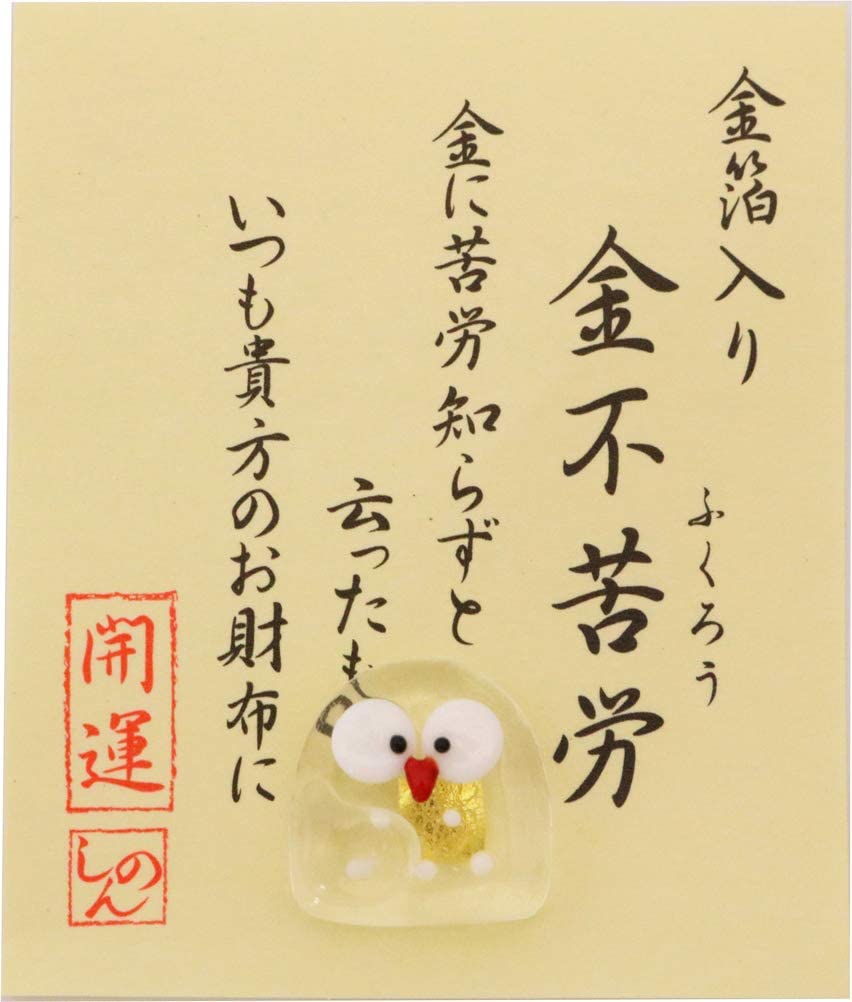 金箔入り
金不苦労
ふくろう
金に苦労知らずと
云ったも
いつも貴方のお財布に
開運
しのん